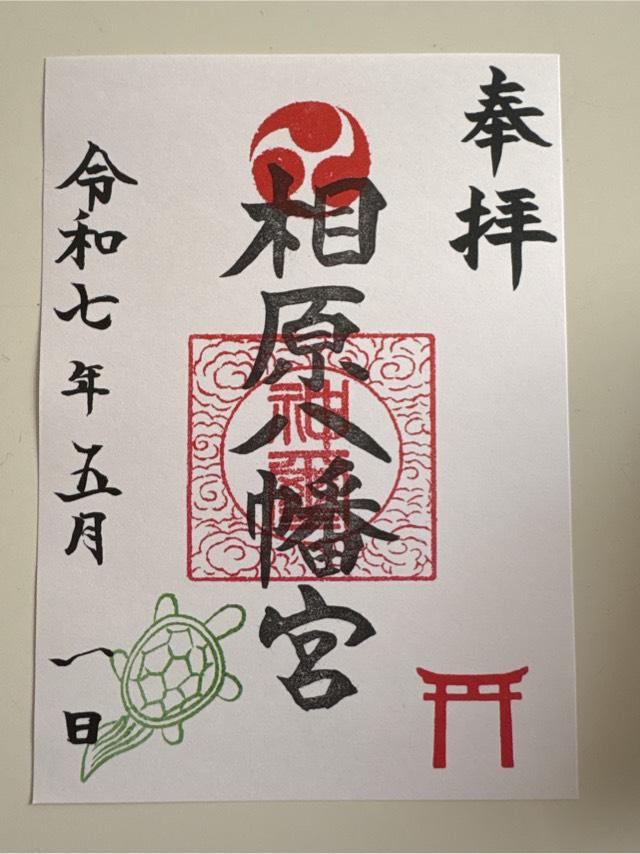 奉拝
相原八幡宮
神璽
令和七年五月一日